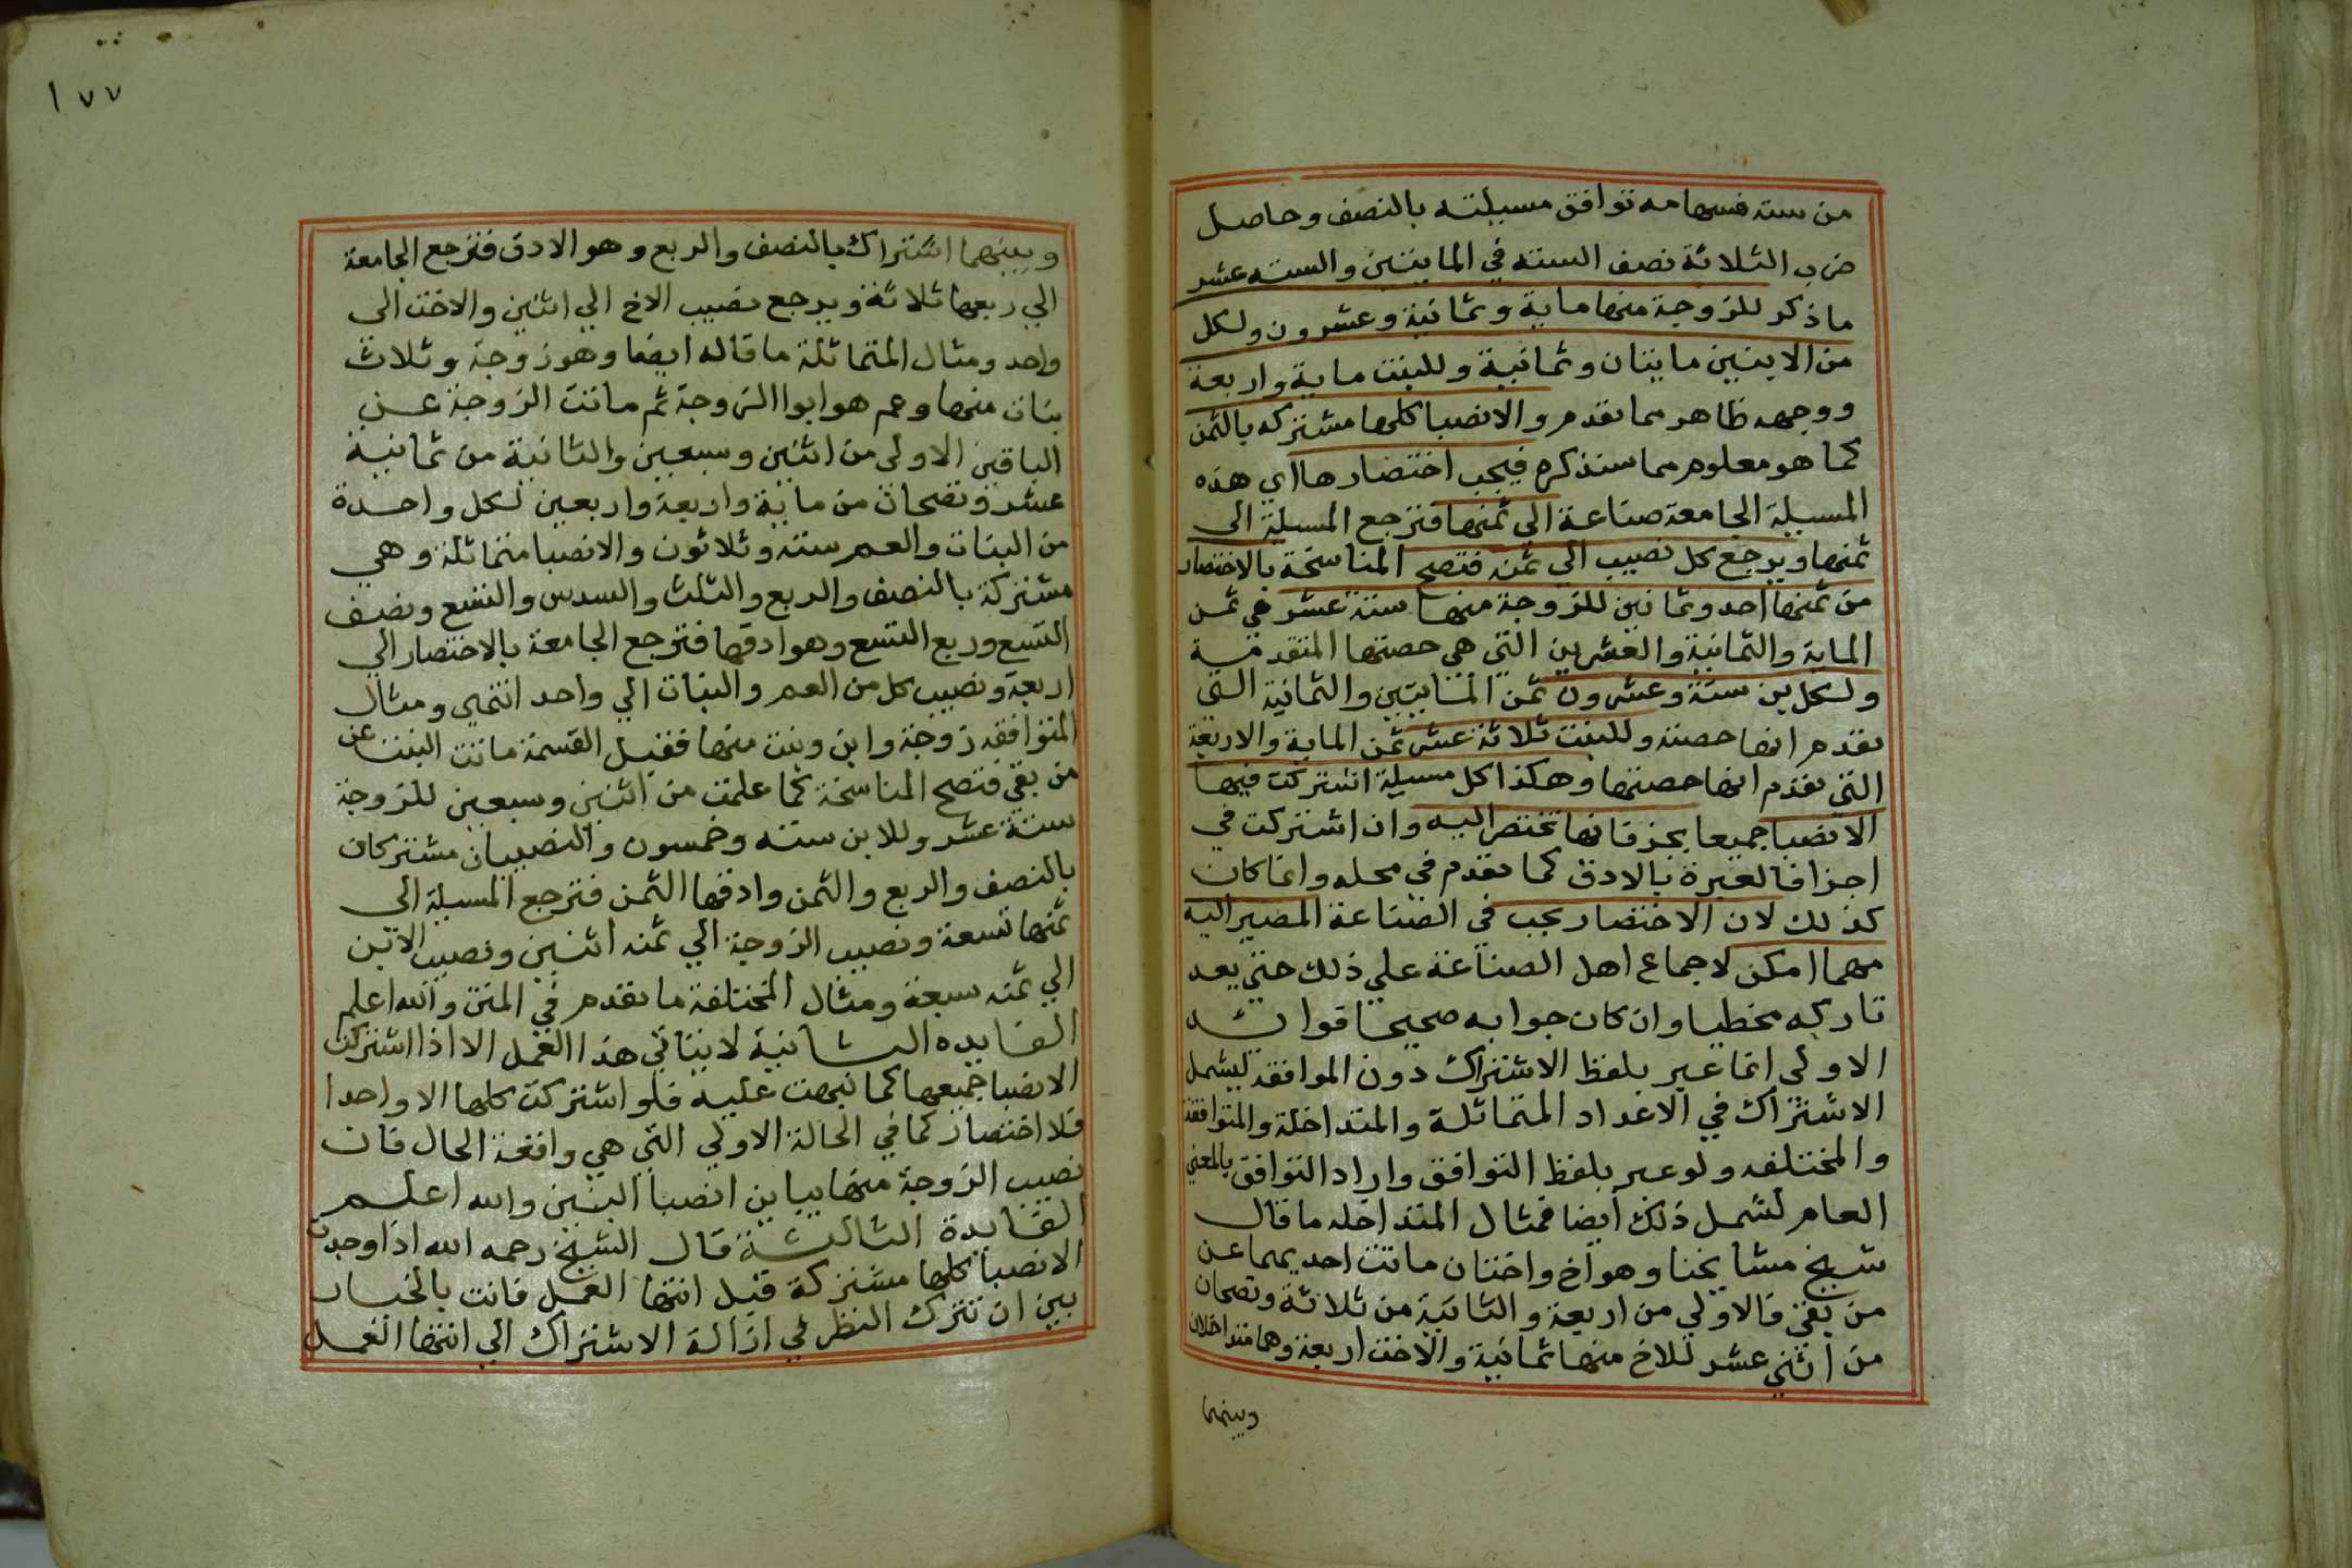 من ستة فسهامه توافق مسيلته بالنصف وحاصل
ضرب الثلاثة نصف الستة في المايتين والسته عشر
ما ذكر للزوجة منها ماية وثمانية وعشرون ولكل
من الابنين مايتان وثمانية وللبنت ماية واربعة
ووجهه ظاهر مما تقدم والانصبا كلها مشتركه بالثمن
كما هو معلوم مما سنذكره فيجب اختصارها اي هذه
المسيلة الجامعة صناعة الي ثمنها فترجع المسيلة الى
ثمنها ويرجع كل نصيب الي ثمنه فتصح المناسخة بالاختصار
من ثمنها احد وثمانين للزوجة منها ستة عشر هي ثمن
الماية والثمانية والعشرين التي هي حصتها المتقدمة
ولكل بن ستة وعشرون ثمن المايتين والثمانية التي
تقدم انها حصته وللبنت ثلاثة عشر ثمن الماية والاربعة
التي تقدم انها حصتها وهكذا كل مسيلة اشتركت فيها
الانصبا جميعا بجز فانها تختصر اليه وان اشتركت في
اجزا فالعبرة بالادق كما تقدم في محله وانما كان
كذلك لان الاختصار يجب في الصناعة المصير اليه
مهما امكن لاجماع اهل الصناعة علي ذلك حتي يعد
تاركه مخطيا وان كان جوابه صحيحا فوايد
الاولى انما عبر بلفظ الاشتراك دون الموافقة ليشمل
الاشتراك في الاعداد المتماثلة والمتداخلة والمتوافقة
والمختلفه ولو عبر بلفظ التوافق واراد التوافق بالمعني
العام لشمل ذلك أيضا فمثال المتداخله ما قال
شيخ مشايخنا وهو أخ واختان ماتت احديهما عن
من بقي فالاولي من اربعة والثانية من ثلاثة وتصحان
من اثني عشر للاخ منها ثمانية والاخت اربعة وهما متداخلان
وبينهما
١٧٧
وبينهما اشتراك بالنصف والربع وهو الادق فترجع الجامعة
الي ربعها ثلاثة ويرجع نصيب الاخ الي اثنين والاخت الى
واحد ومثال المتماثلة ما قاله ايضا وهو زوجة وثلاث
بنات منها وعم هو ابوا الزوجة ثم ماتت الزوجة عن
الباقين الاولى من اثنين وسبعين والثانية من ثمانية
عشر وتصحان من ماية واربعة واربعين لكل واحدة
من البنات والعم ستة وثلاثون والانصبا متماثلة وهي
مشتركة بالنصف والربع والثلث والسدس والتسع ونصف
التسع وربع التسع وهو ادقها فترجع الجامعة بالاختصار الي
اربعة ونصيب كل من العم والبنات الي واحد انتهي ومثال
المتوافقه زوجة وابن وبنت منها فقبل القسمة ماتت البنت عن
من بقي فتصح المناسخة كما علمت من اثنين وسبعين للزوجة
ستة عشر وللابن سته وخمسون والنصيبان مشتركان
بالنصف والربع والثمن وادقها الثمن فترجع المسيلة الى
ثمنها تسعة ونصيب الزوجة الي ثمنه اثنين ونصيب الابن
الي ثمنه سبعة ومثال المختلفة ما تقدم في المتن والله اعلم
الفايده الثانية لا يتاتي هذا العمل الا اذا اشتركت
الانصبا جميعها كما نبهت عليه فلو اشتركت كلها الا واحدا
فلا اختصار كما في الحالة الاولي التي هي واقعة الحال فان
نصيب الزوجة منها يباين انصبا البنين والله اعلم
الفايدة الثالثة قال الشيخ رحمه الله اذا وجدت
الانصبا كلها مشتركة قبل انتها العمل فانت بالخيار
بين ان تترك النظر في ازالة الاشتراك الي انتها العمل